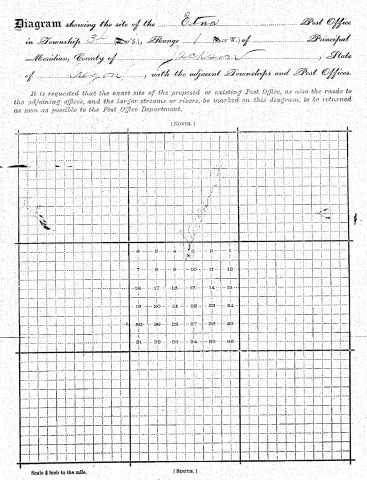 Diagram showing the site of the Etna Post Office
in Township 34 (N. or S.), Range 1 (E. or W.) of Principal
Meridian, County of Jackson, State
of Oregon, with the adjacent Townships and Post Offices.
It is requested that the exact site of the proposed or existing Post Office, as also the roads to
the adjoining offices, and the larger streams or rivers, be marked on this diagram, to be returned
as soon as possible to the Post Office Department.
(NORTH.)
6 5 4 3 2 1
7 8 9 10 11 12
18 17 16 15 14 13
19 20 21 22 23 24
30 29 28 27 26 25
31 32 33 34 35 36
Scale ½ inch to the mile.
(SOUTH.)